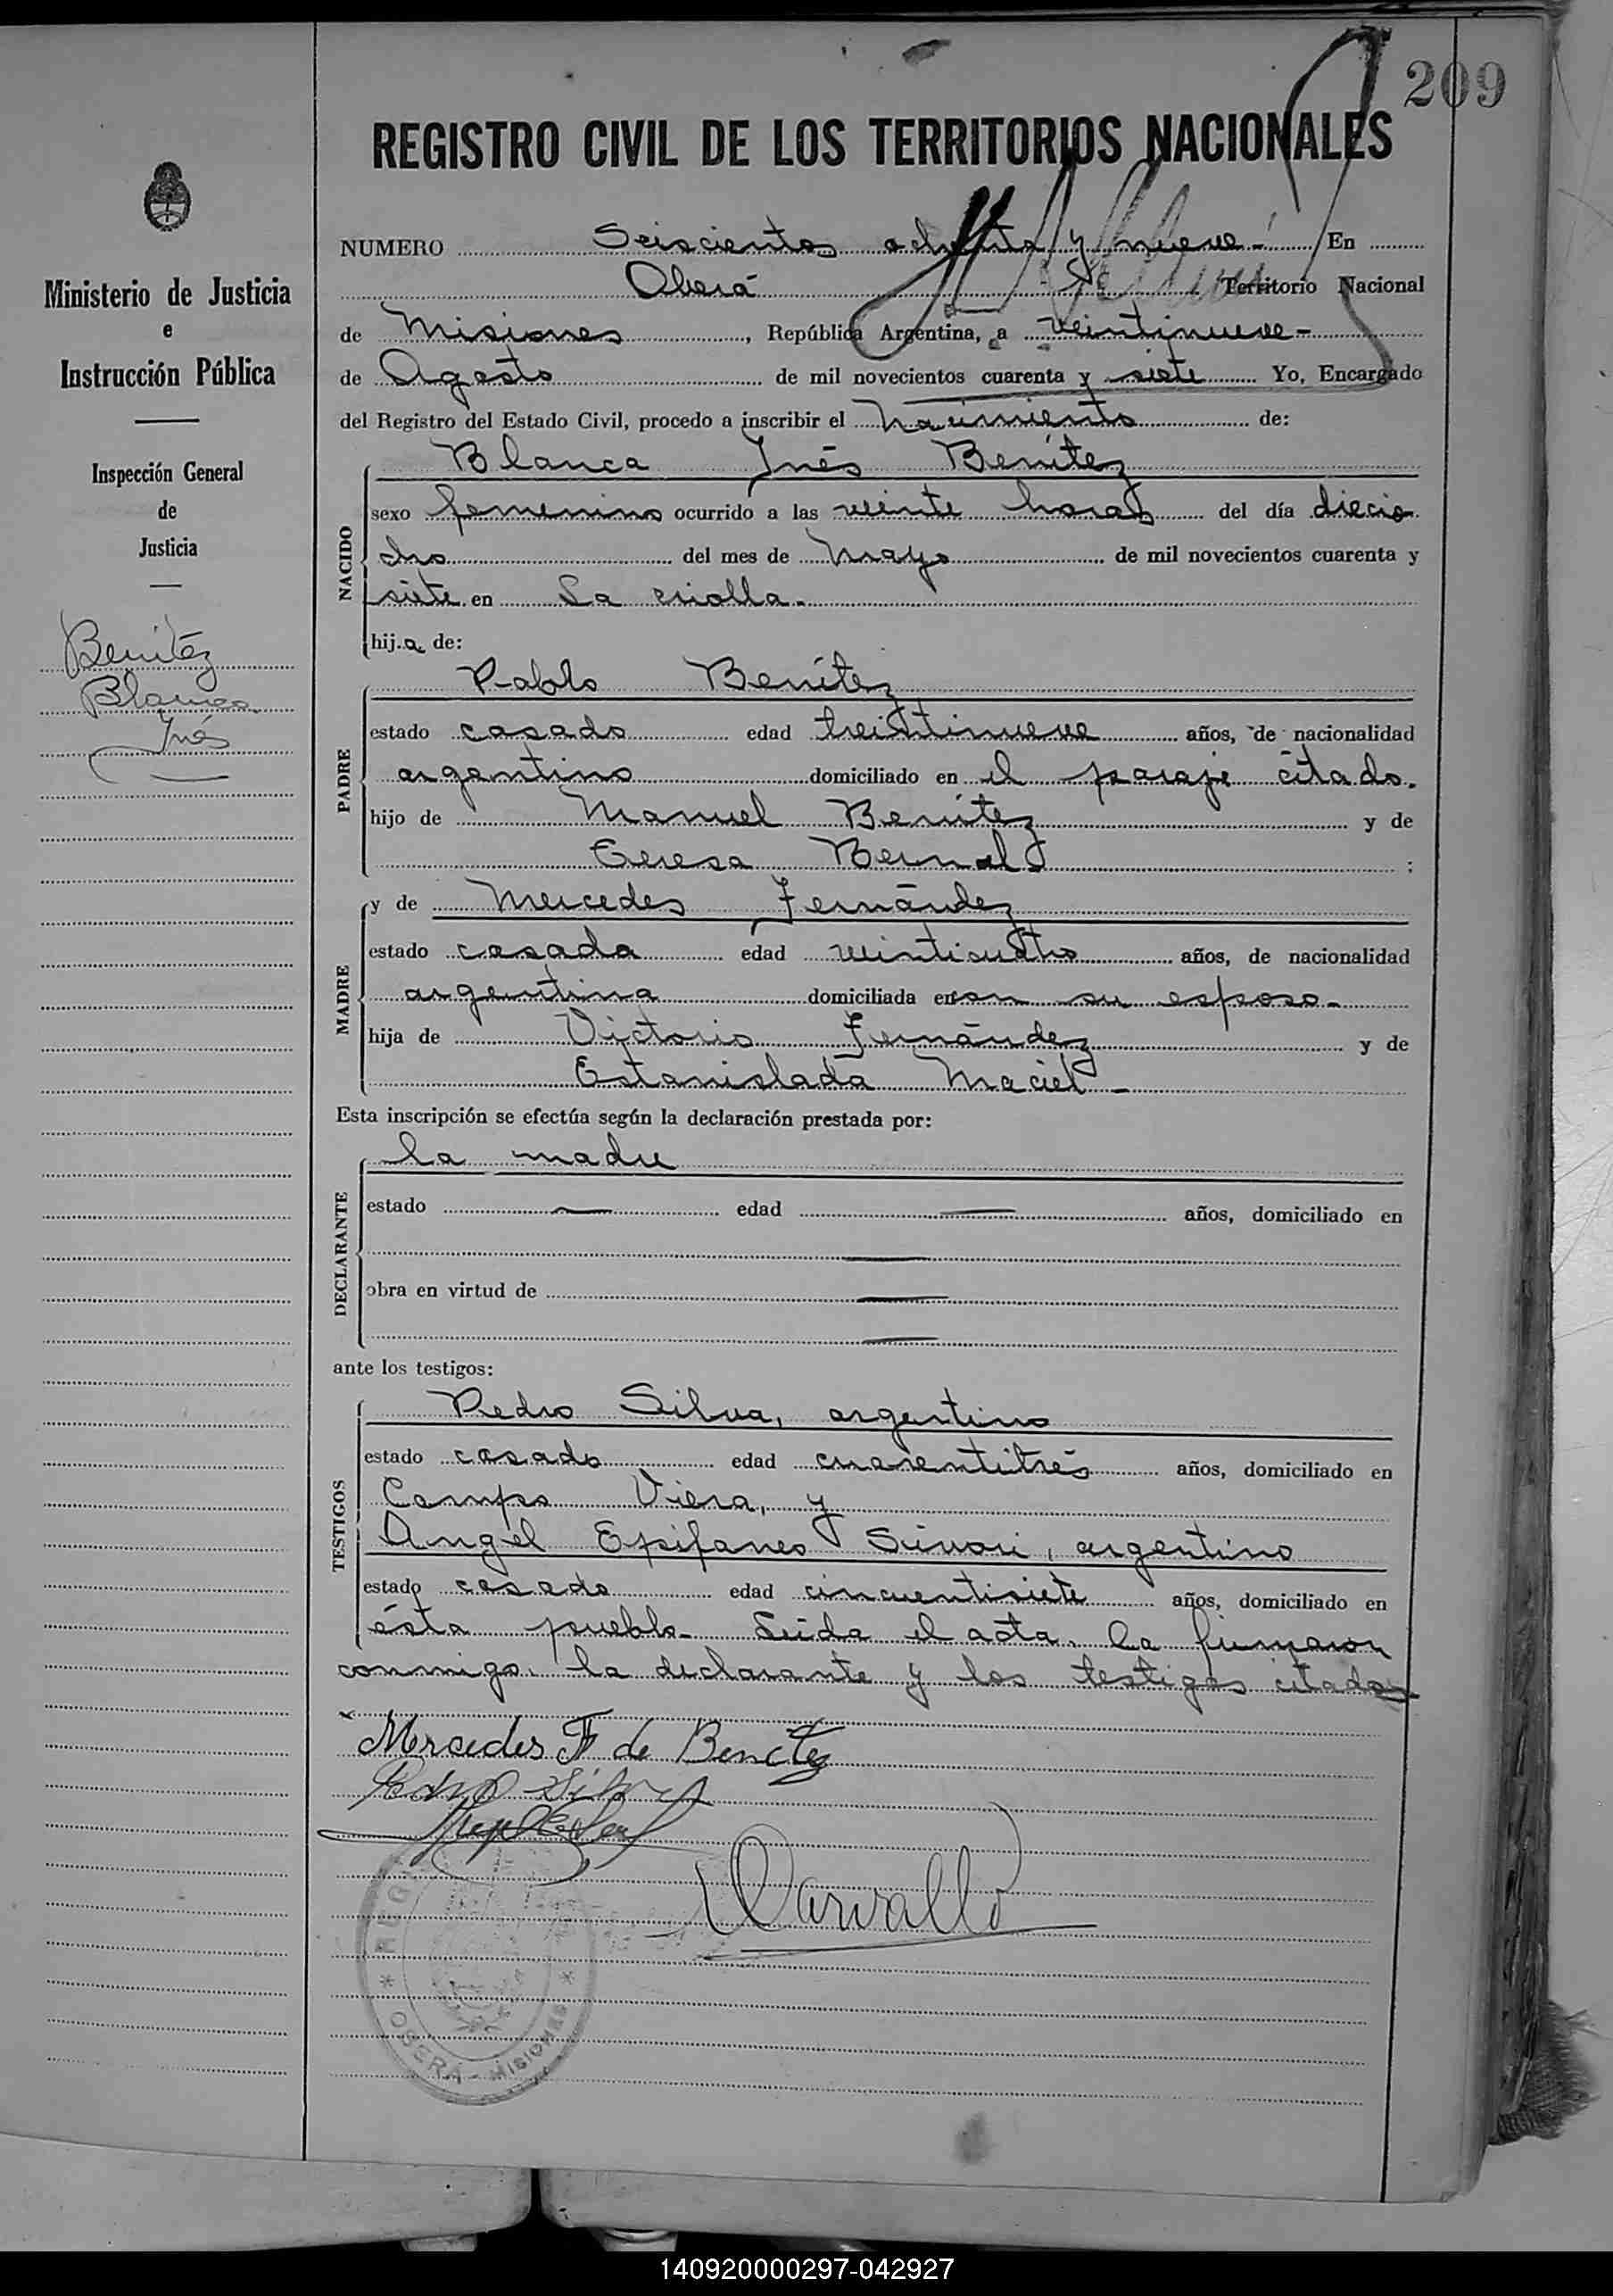 209
REGISTRO CIVIL DE LOS TERRITORIOS NACIONALES
Ministerio de Justicia
e
Instrucción Pública
Inspección General
de
Justicia
Benítez
Blanca
Inés
NUMERO Seiscientos ochenta y nueve.- En
Oberá Territorio Nacional
de Misiones, República Argentina, a veintinueve-
de Agosto de mil novecientos cuarenta y siete Yo, Encargado
del Registro del Estado Civil, procedo a inscribir el nacimiento de:
NACIDO
Blanca Inés Benítez
sexo femenino ocurrido a las veinte horas del día diecio
cho del mes de Mayo de mil novecientos cuarenta y
siete en La criolla.
hija de:
PADRE
Pablo Benítez
estado casado edad treintinueve años, de nacionalidad
argentino domiciliado en el paraje citado.
hijo de Manuel Benítez y de
Teresa Bernal ;
MADRE
y de Mercedes Fernández
estado casada edad veinticuatro años, de nacionalidad
argentina domiciliada en con su esposo-
hija de Victorio Fernández y de
Estanislada Maciel-
Esta inscripción se efectúa según la declaración prestada por:
DECLARANTE
la madre
estado — edad — años, domiciliado en
—
obra en virtud de —
—
ante los testigos:
TESTIGOS
Pedro Silva, argentino
estado casado edad cuarentitrés años, domiciliado en
Campo Viera, y
Angel Epifaneo argentino
estado casado edad cincuentisiete años, domiciliado en
ésta pueblo- Leída el acta, la firmaron
conmigo, la declarante y los testigos citados-
Mercedes F de Benítez
Pedro Silva
Carvallo
OBERÁ - MISIONES
140920000297-042927